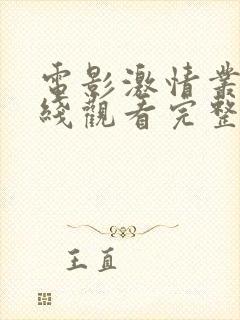 電影激情叢
綫觀看完整
王直